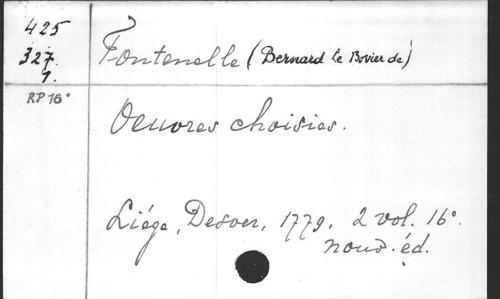 425
327.
1.
RP 16°
Fontenelle (Bernard le Bovier de)
Oeuvres choisies.
Liége, Desoer, 1779. 2 vol. 16°.
nouv. éd.